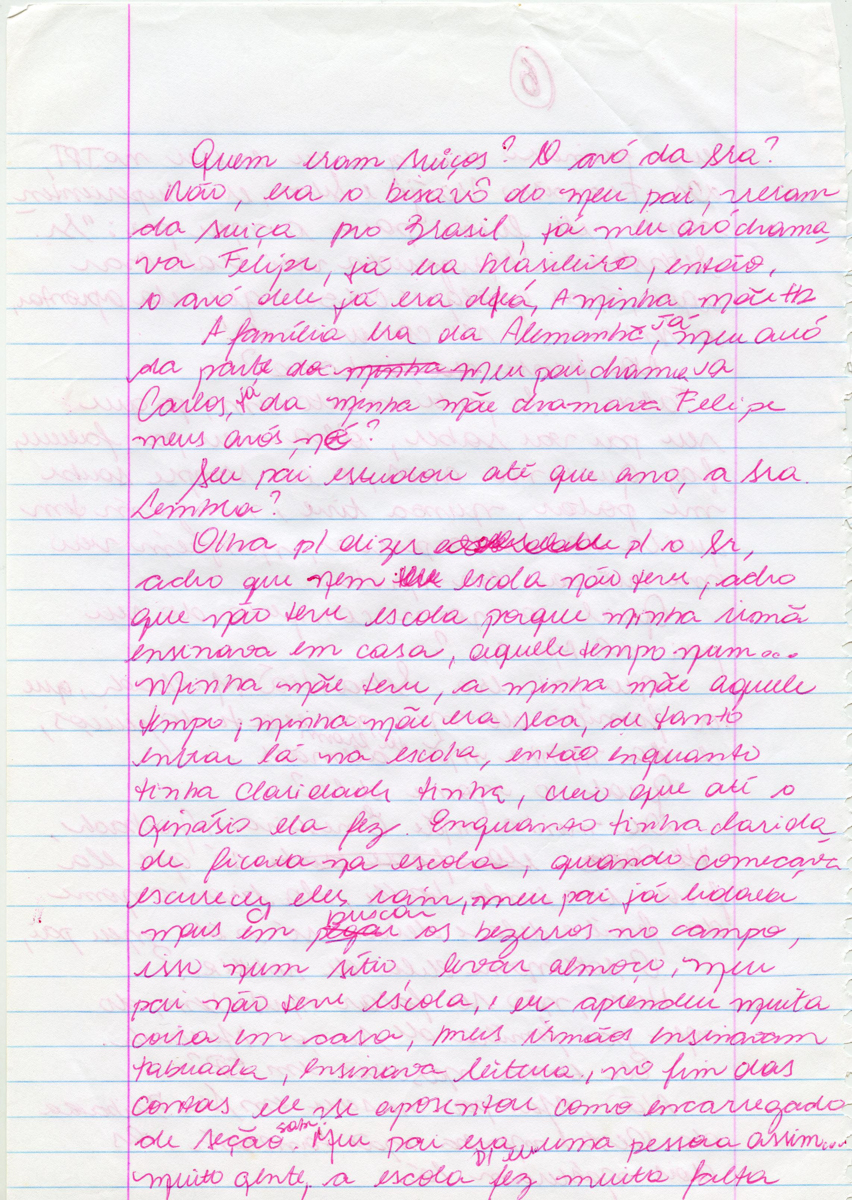 Quem eram suiços? O avó da Sra?
Não, era o bisavô do meu pai, vieram
da suiça pro Brasil, já meu avó chama
va Felipe, já era brasileiro, então,
o avó dele já era de lá, A minha mãe
A família era da Alemanha, já meu avó
da parte da minha meu pai chamava
Carlos, já da minha mãe chamava Felipe
meus avós, né?
Seu pai estudou até que ano, a Sra.
Lembra?
Olha p/ dizer p/ o Sr,
acho que nem escola não teve, acho
que não teve escola porque minha irmã
ensinava em casa, aquele tempo num...
Minha mãe teve, a minha mãe aquele
tempo, minha mãe era seca, de tanto
entrar lá na escola, então enquanto
tinha claridade tinha, creio que até o
Ginásio ela fez. Enquanto tinha clarida
de ficava na escola, quando começava
escurecer, eles saim, meu pai já lidava
mais em pegar buscar os bezerros no campo,
isso num sítio, levar almoço, meu
pai não teve escola, e eu aprendeu muita
coisa em casa, meus irmãos ensinavam
tabuada, ensinava leitura, no fim das
contas ele se aposentou como encarregado
de seção. Meu pai era uma pessoa assim....
muito gente, a escola fez muita falta